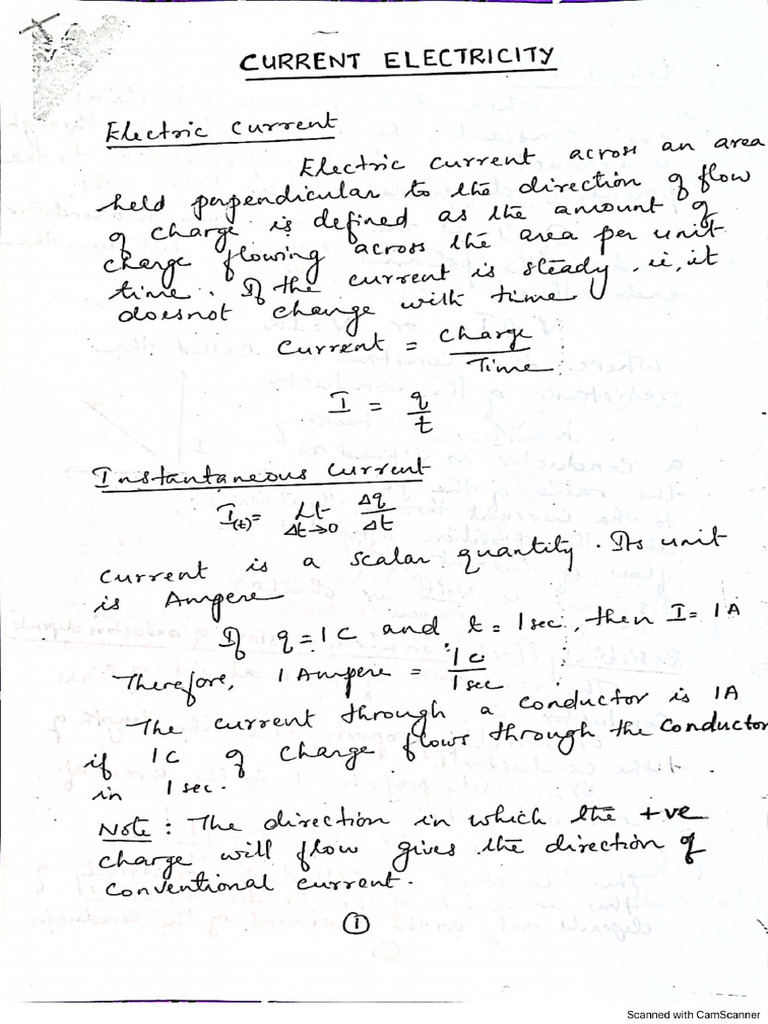 CURRENT ELECTRICITY
Electric Current
Electric current across an area
held perpendicular to the direction of flow
of charge is defined as the amount of
charge flowing across the area per unit
time. If the current is steady, ie, it
doesnot change with time
Current = Charge / Time
I = q / t
Instantaneous Current
I(t) = Lt Δt→0 Δq / Δt
Current is a scalar quantity. Its unit
is Ampere
If q = 1C and t = 1 sec, then I = 1A
Therefore, 1 Ampere = 1C / 1 sec
The current through a conductor is 1A
if 1C of charge flows through the conductor
in 1 sec.
Note: The direction in which the +ve
charge will flow gives the direction of
conventional current.
1
Scanned with CamScanner